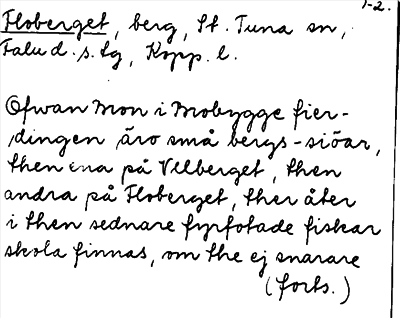 1-2.
Floberget, berg, St. Tuna sn,
Falu d. s. lg, Kopp. l.
Ofwan Mon i Mobygge fier-
dingen äro små bergs-siöar,
then ena på Ulberget, then
andra på Floberget, ther åter
i then sednare fyrfotade fiskar
skola finnas, om the ej snarare
(forts.)